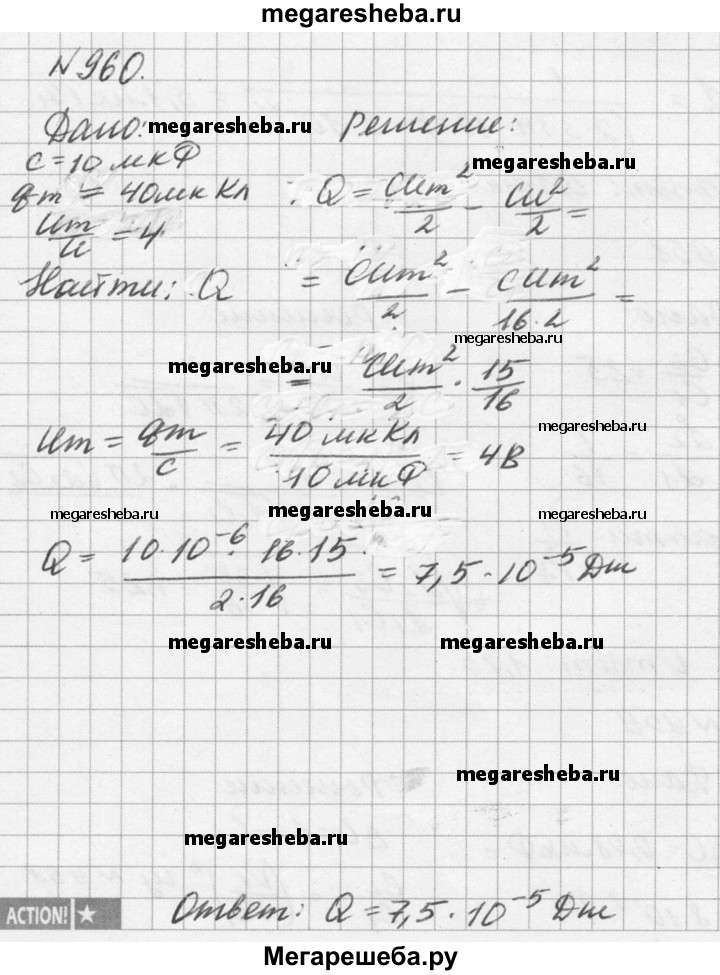 megaresheba.ru
№960.
Дано: megaresheba.ru Решение:
C = 10 мкФ megaresheba.ru
qm = 40 мкКл : Q = CUm²/2 - CU²/2 =
Um/U = 4
Найти: Q = CUm²/2 - CUm²/16·2 =
megaresheba.ru
megaresheba.ru = CUm²/2 · 15/16
Um = qm/C = 40 мкКл/10 мкФ = 4В megaresheba.ru
megaresheba.ru megaresheba.ru megaresheba.ru
Q = 10·10⁻⁶·16·15/2·16 = 7,5·10⁻⁵ Дж
megaresheba.ru megaresheba.ru
megaresheba.ru
megaresheba.ru
ACTION! Ответ: Q = 7,5·10⁻⁵ Дж
Мегарешеба.ру